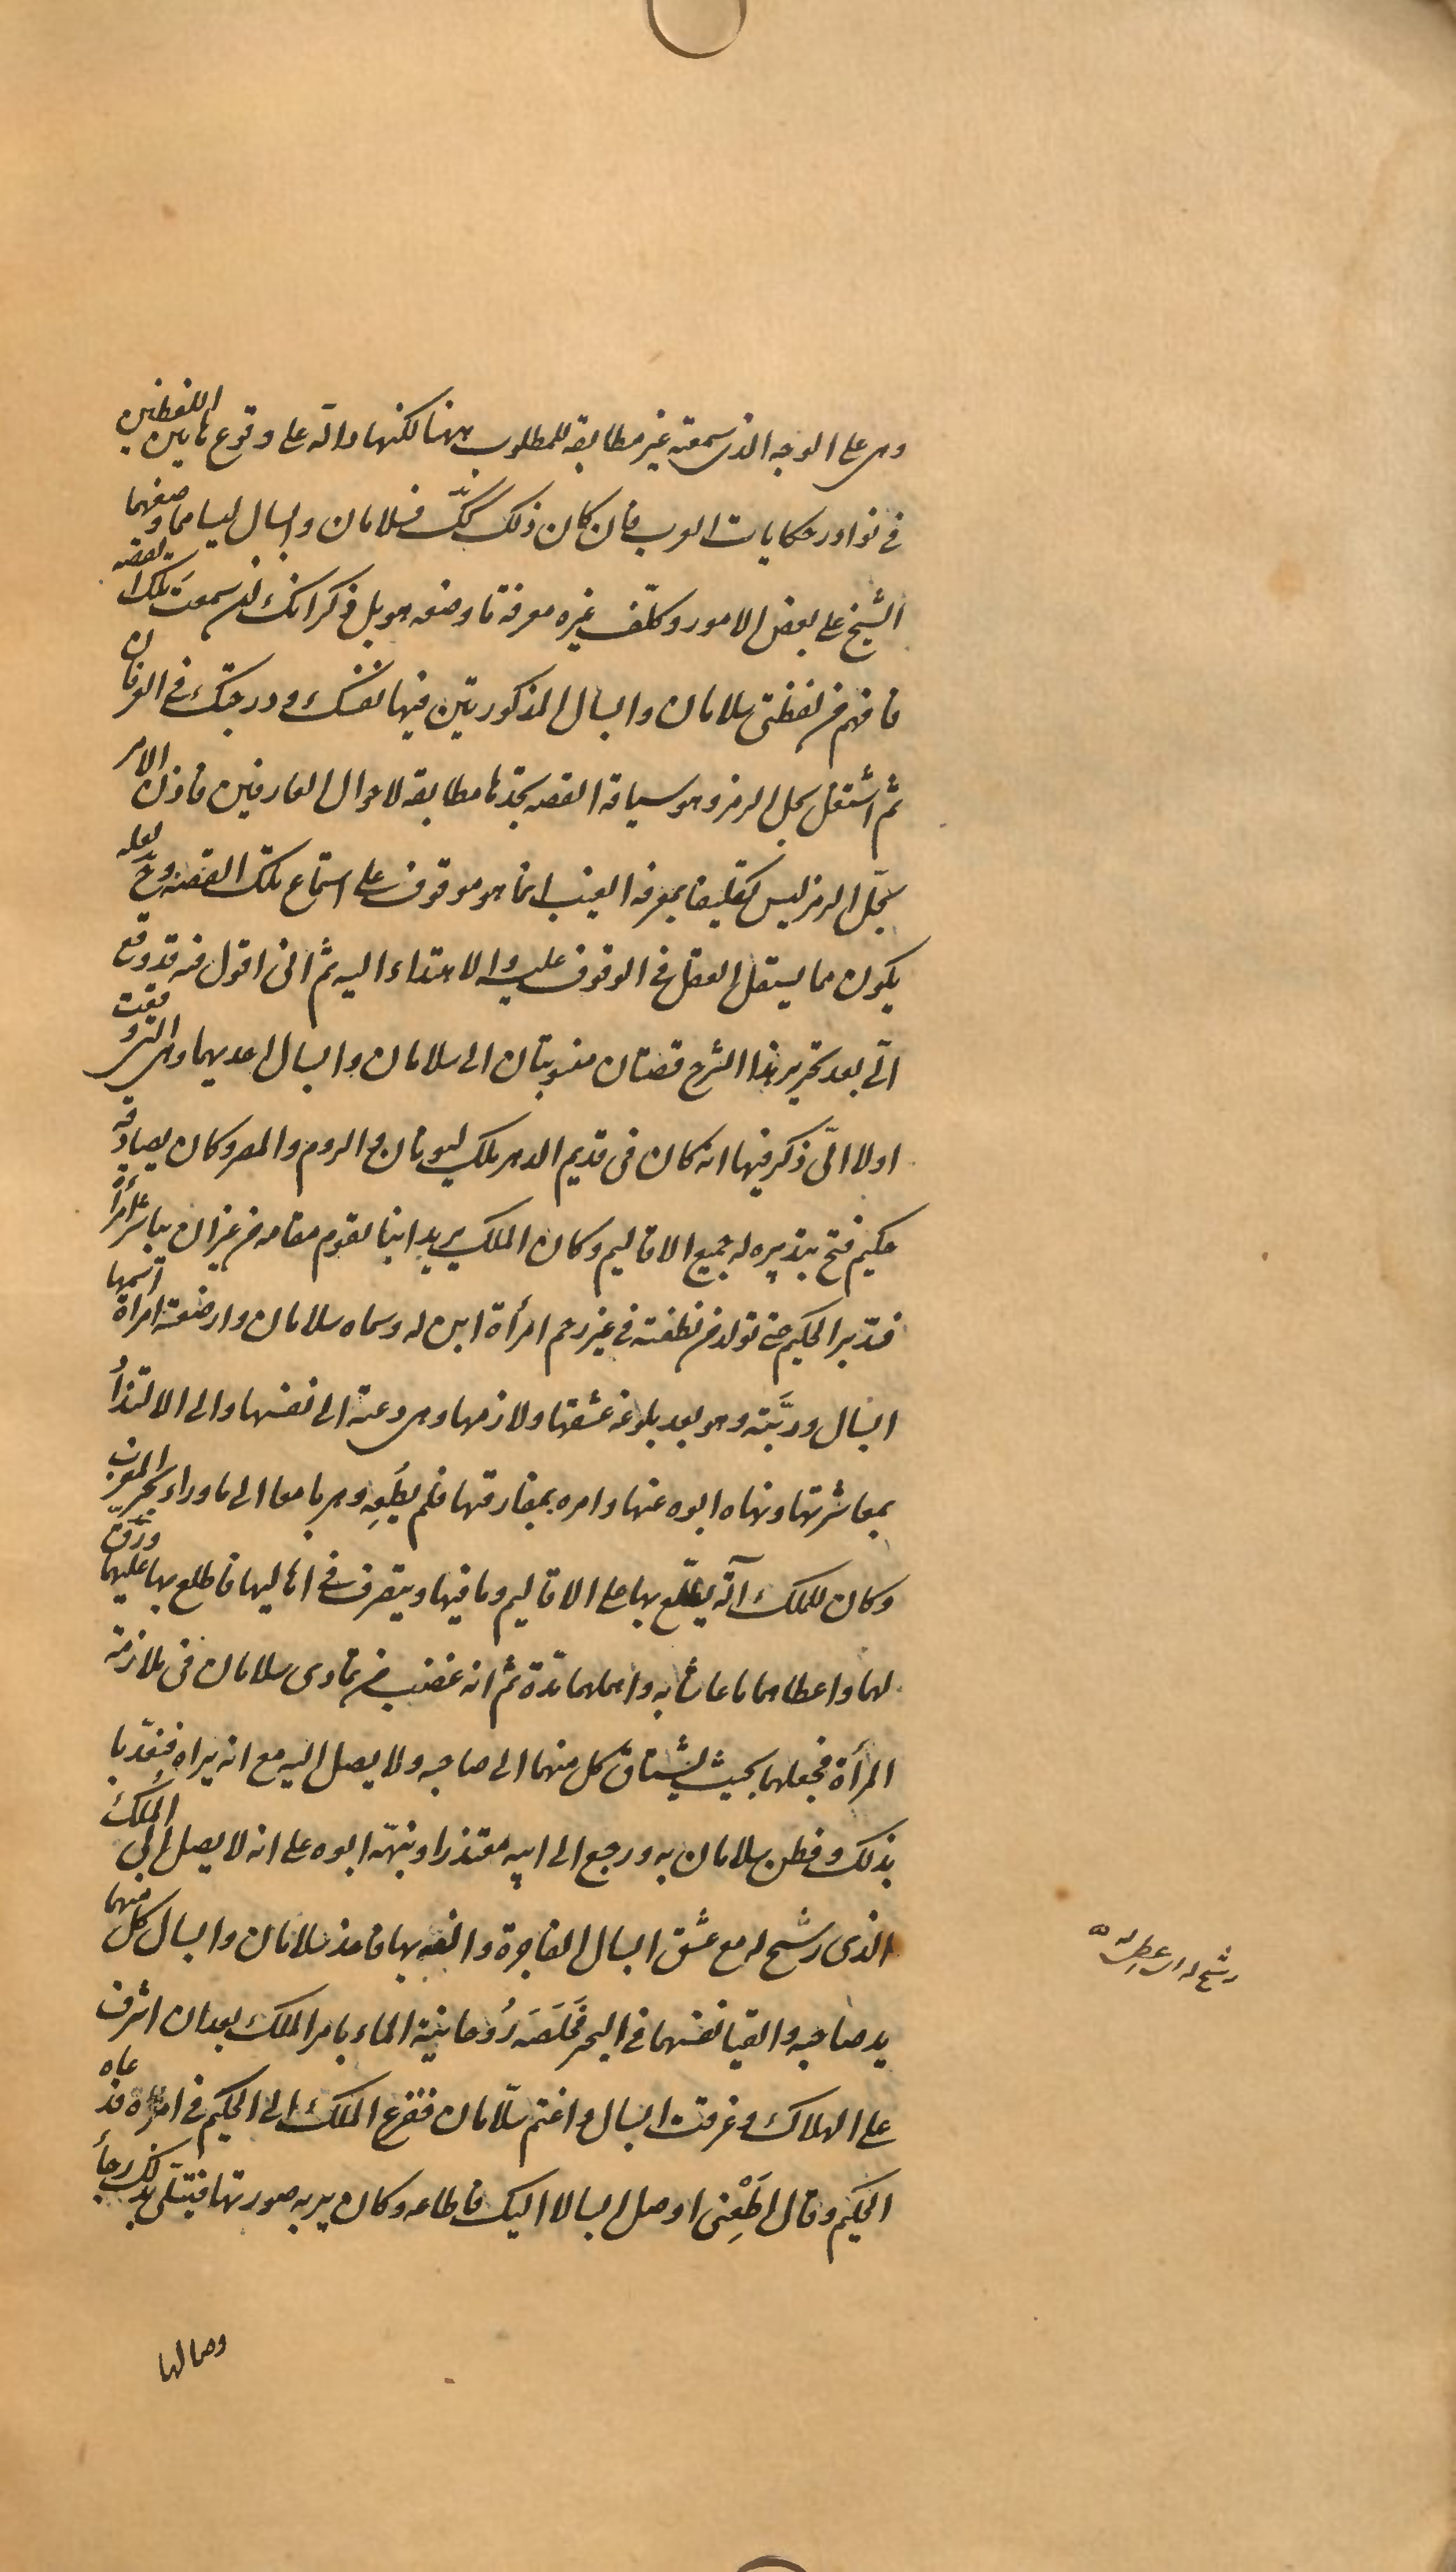 وهى على الوجه الذى سمعته غير مطابقة للمطلوب ههنا لكنها دالّة على وقوع هاتين اللفظتين
فى نوادر حكايات العرب فان كان ذلك كك فسلامان وابسال ليسا مما وضعهما
الشيخ على بعض الامور وكلّف غيره معرفة ما وضعه هو بل ذكر انك ان سمعتَ تلك القصه
فافهم من لفظتى سلامان وابسال المذكورتين فيها نفسك ودرجتك فى العرفان
ثم اشتغل بحل الرمز وهو سياقة القصه تجدها مطابقة لاحوال العارفين فاذن الامر
بحلّ الرمز ليس تكليفا بمعرفة الغيب انما هو موقوف على استماع تلك القصه وح لعله
يكون مما يستقل العقل فى الوقوف عليه والاهتداء اليه ثم انى اقول قد وقع
الىّ بعد تحرير هذا الشرح قصتان منسوبتان الى سلامان وابسال احديهما وهى التى وقعت
اولا الىّ ذكر فيها انه كان فى قديم الدهر ملك ليونان و الروم والمصر وكان يصادقه
حكيم فتح بتدبيره له جميع الاقاليم وكان الملك يريد ابنا يقوم مقامه من غير ان يباشر امرأة
فدبّر الحكيم حتى تولد من نطفته فى غير رحم امرأة ابن له وسماه سلامان وارضعته امرأة اسمها
ابسال وربَّته وهو بعد بلوغه عشقها ولازمها وهى دعته الى نفسها والى الالتذاذ
بمعاشرتها ونهاه ابوه عنها وامره بمفارقتها فلم يُطِعه وهربا معا الى ما وراء بحر المغرب
وكان للملك آلة يطّلع بها على الاقاليم وما فيها ويتصرف فى اهاليها فاطلع بها عليهما ورَقّ
لهما واعطاهما ما عاشا به واهملهما مدّة ثم انه غضب من تمادى سلامان فى ملازمة
المرأة فجعلهما بحيث يشتاق كل منهما الى صاحبه ولا يصل اليه مع انه يراه فتعذّبا
بذلك وفطن سلامان به ورجع الى ابيه معتذرا ونبّهه ابوه على انه لا يصل الى المُلك
الذى رشح له مع عشق ابسال الفاجرة والفه بها فاخذ سلامان وابسال كل منهما
يد صاحبه والقيا نفسهما فى البحر فخَلَّصَه رُوحانية الماء بامر الملك بعد ان اشرف
على الهلاك وغرقت ابسال واغتم سلامان ففزع الملك الى الحكيم فى امره فدعاه
الحكيم وقال اَطِعْنى اوصل ابسالا اليك فاطاعه وكان يريه صورتها فيتسلّى بذلك رجاء
وصالها